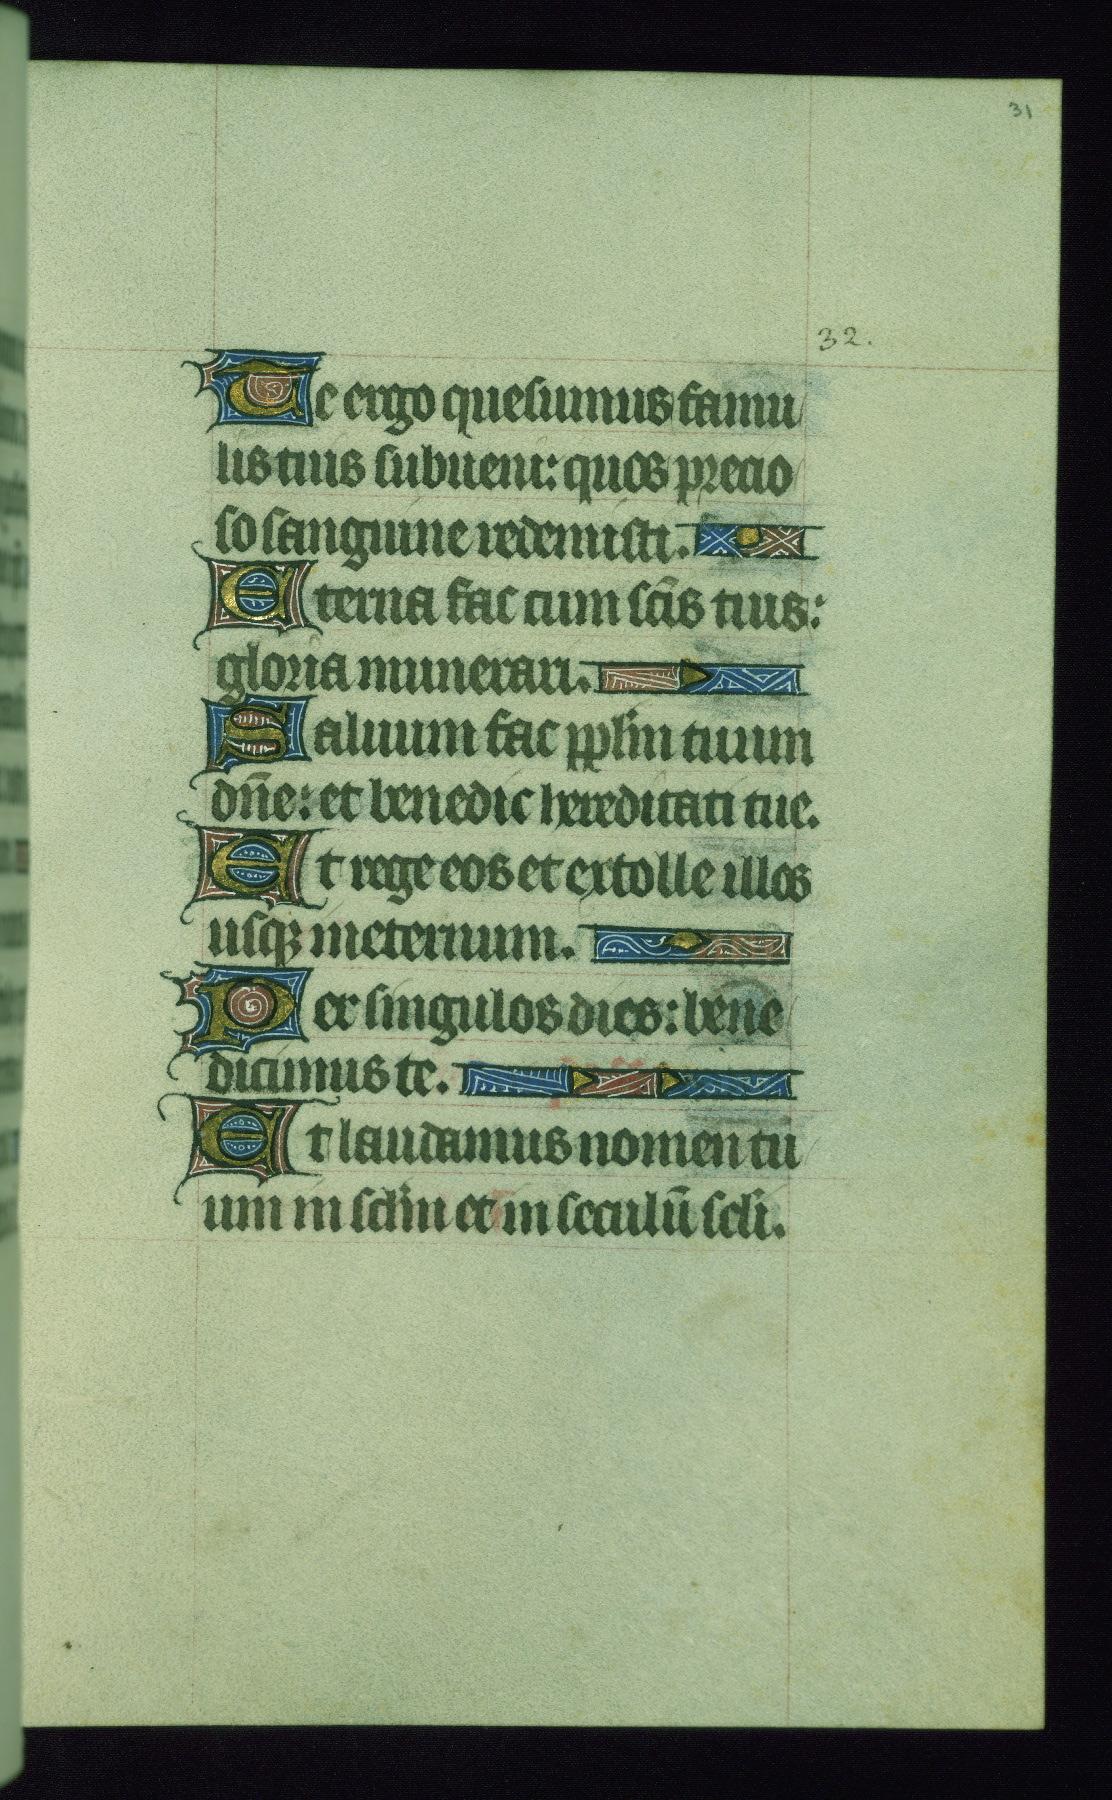 31
32.
Te ergo quesumus famu
lis tuis subueni: quos precio
so sanguine redemisti.
Eterna fac cum sc̄is tuis:
gloria munerari.
Saluum fac pplm̄ tuum
dn̄e: et benedic hereditati tue.
Et rege eos et extolle illos
usqꝫ ineternum.
Per singulos dies: bene
dicimus te.
Et laudamus nomen tu
um in sclm̄ et in seculū scli.